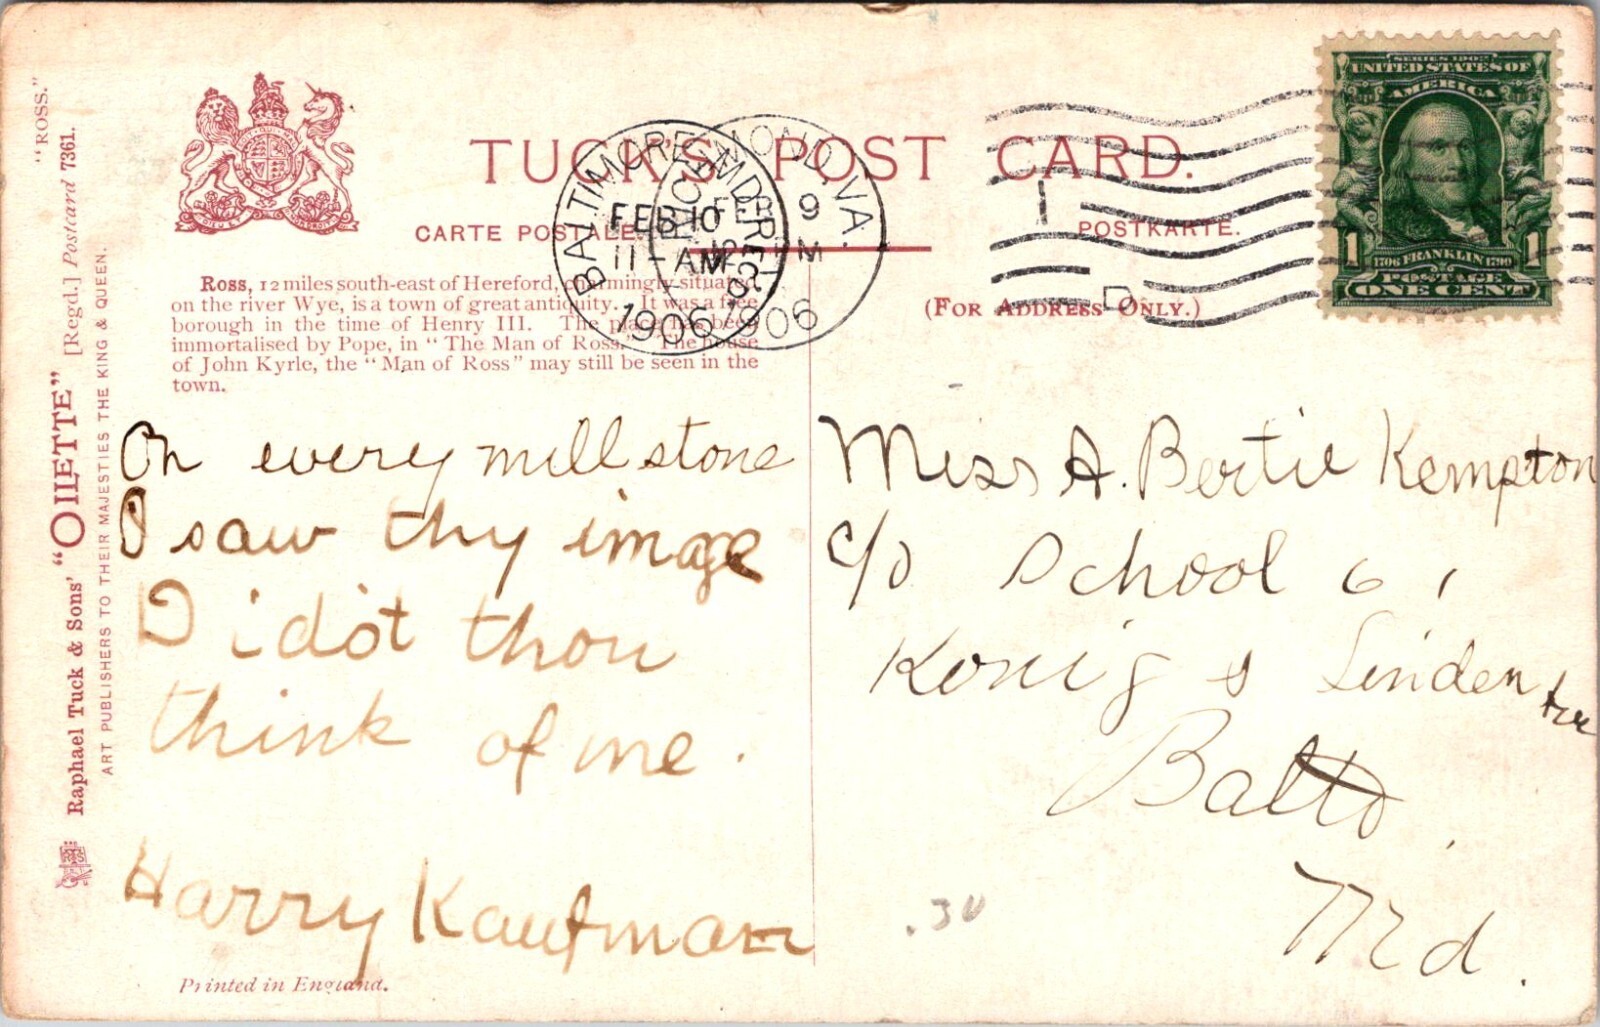 "ROSS."
Raphael Tuck & Sons' "OILETTE" [Regd.] Postcard 7361.
ART PUBLISHERS TO THEIR MAJESTIES THE KING & QUEEN.
TUCK'S POST CARD.
CARTE POSTALE.
POSTKARTE.
(FOR ADDRESS ONLY.)
Ross, 12 miles south-east of Hereford, charmingly situated
on the river Wye, is a town of great antiquity. It was a free
borough in the time of Henry III. The place has been
immortalised by Pope, in "The Man of Ross." The house
of John Kyrle, the "Man of Ross" may still be seen in the
town.
BALTIMORE, MD.
REC'D
FEB 10
11-AM
1906
RICHMOND, VA.
FEB 9
1906
1
D
SERIES 1902
UNITED STATES OF
AMERICA
1706 FRANKLIN 1790
POSTAGE
1 ONE CENT 1
On every mill stone
I saw thy image
I idot thou
think of me.
Harry Kaufman
Miss A. Bertie Kempton
c/o School 61
Konig & Linden Ave
Balto.
Md.
.30
Printed in England.